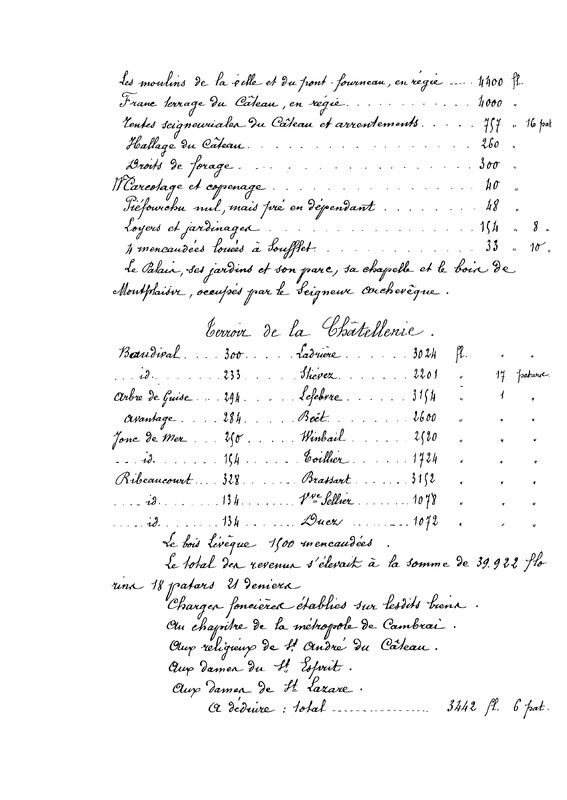 Les moulins de la ville et du pont-fourneau, en régie .... 4400 fl.
Franc terrage du Câteau, en régie .......... 4000 "
Rentes seigneuriales du Câteau et arrentements ..... 757 " 16 pat
Hallage du Câteau .......... 260 "
Droits de forage .......... 300 "
Marcotage et copenage .......... 40 "
Piéfourchu nul, mais pré en dépendant ....... 48 "
Loyers et jardinages .......... 154 " 8 "
4 mencaudées louées à Soufflet .......... 33 " 10 "
Le Palais, ses jardins et son parc, sa chapelle et le bois de
Montplaisir, occupés par le Seigneur archevêque.
Terroir de la Châtellenie.
Baudival .... 300 ..... Ladrière ...... 3024 fl. " "
.... id. ..... 233 ..... Stiévez ...... 2201 " 17 patars.
Arbre de Guise ... 294 ..... Lefebvre ...... 3154 " 1 "
avantage ..... 284 ..... Boët ...... 2600 " " "
Jonc de Mer ... 250 ..... Winbail ...... 2520 " " "
.... id. ..... 154 ..... Toillier ...... 1724 " " "
Ribeaucourt ... 328 ..... Brassart ...... 3152 " " "
..... id. ..... 134 ..... Vve Sellier ..... 1078 " " "
..... id. ..... 134 ..... Duez ...... 1072 " " "
Le bois Lévêque 1500 mencaudées.
Le total des revenus s'élevait à la somme de 39.922 flo
rins 18 patars 21 deniers
Charges foncières établies sur lesdits biens.
Au chapitre de la métropole de Cambrai.
Aux religieux de St André du Câteau.
Aux dames du St Esprit.
Aux dames de St Lazare.
A déduire : total .......... 3442 fl. 6 pat.